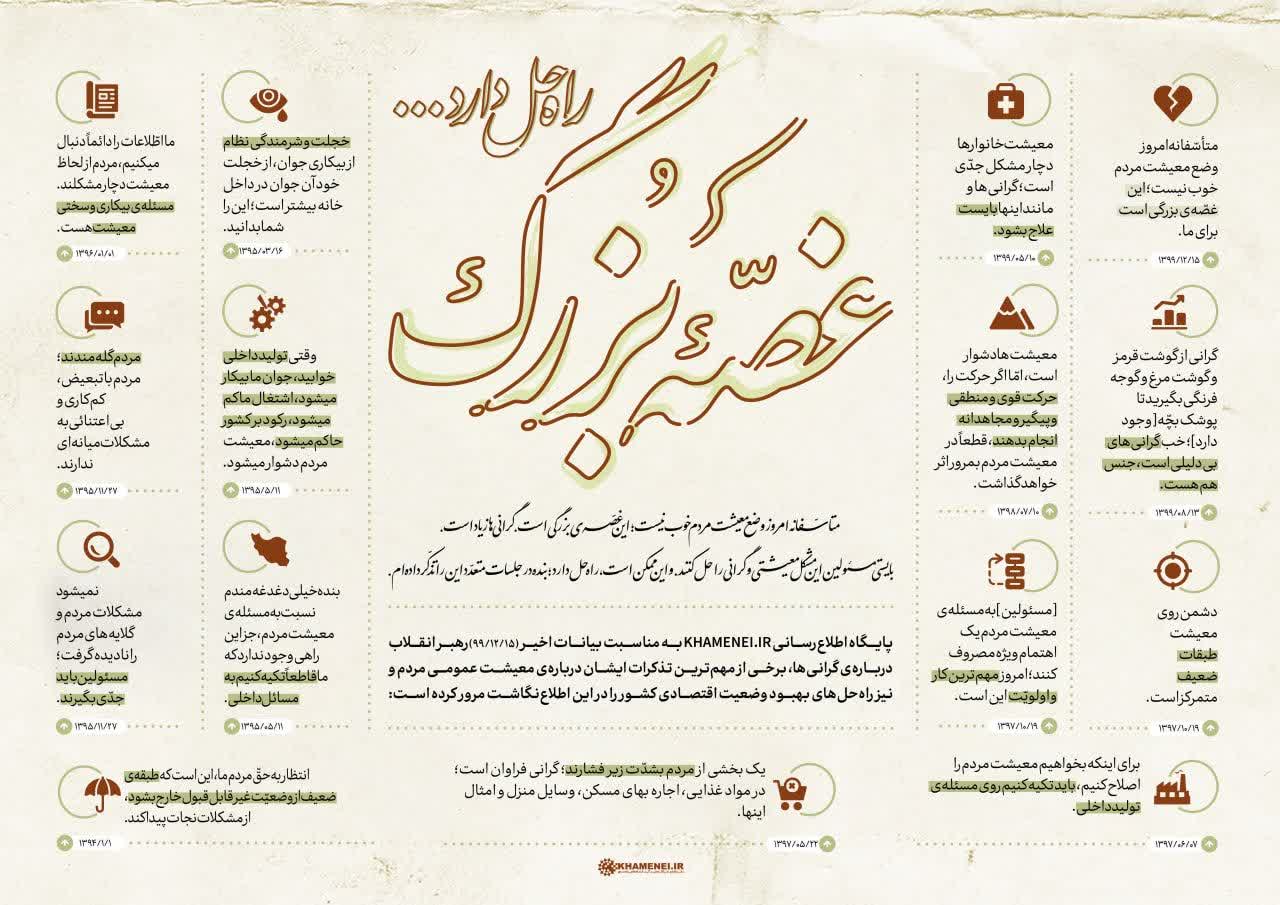 غصّهٔ بزرگ گرچه
راه‌حل دارد...
متأسّفانه امروز وضع معیشت مردم خوب نیست؛ این غصّه‌ی بزرگی است. گرانی‌ها زیاد است.
بایستی مسئولین این مشکل معیشتی و گرانی را حل کنند. و این ممکن است، راه‌حل دارد؛ بنده در جلسات متعدّد این را تذکّر داده‌ام.
پایگاه اطلاع‌رسانی KHAMENEI.IR به مناسبت بیانات اخیر (۹۹/۱۲/۱۵) رهبر انقلاب
درباره‌ی گرانی‌ها، برخی از مهم‌ترین تذکرات ایشان درباره‌ی معیشت عمومی مردم و
نیز راه‌حل‌های بهبود وضعیت اقتصادی کشور را در این اطلاع‌نگاشت مرور کرده است:
متأسّفانه امروز
وضع معیشت مردم
خوب نیست؛ این
غصّه‌ی بزرگی است
برای ما.
۱۳۹۹/۱۲/۱۵
معیشت خانوارها
دچار مشکل جدّی
است؛ گرانی‌ها و
مانند اینها بایست
علاج بشود.
۱۳۹۹/۰۵/۱۰
گرانی از گوشت قرمز
و گوشت مرغ و گوجه
فرنگی بگیرید تا
پوشک بچّه [وجود
دارد]؛ خب گرانی‌های
بی‌دلیلی است، جنس
هم هست.
۱۳۹۹/۰۸/۱۳
معیشت‌ها دشوار
است، امّا اگر حرکت را،
حرکت قوی و منطقی
و پیگیر و مجاهدانه
انجام بدهند، قطعاً در
معیشت مردم بمرور اثر
خواهد گذاشت.
۱۳۹۸/۰۷/۱۰
دشمن روی
معیشت
طبقات
ضعیف
متمرکز است.
۱۳۹۷/۱۰/۱۹
[مسئولین] به مسئله‌ی
معیشت مردم یک
اهتمام ویژه مصروف
کنند؛ امروز مهم‌ترین کار
و اولویّت این است.
۱۳۹۷/۱۰/۱۹
برای اینکه بخواهیم معیشت مردم را
اصلاح کنیم، باید تکیه کنیم روی مسئله‌ی
تولید داخلی.
۱۳۹۷/۰۶/۰۷
یک بخشی از مردم بشدّت زیر فشارند؛ گرانی فراوان است؛
در مواد غذایی، اجاره بهای مسکن، وسایل منزل و امثال
اینها.
۱۳۹۷/۰۵/۲۲
خجلت و شرمندگی نظام
از بیکاری جوان، از خجلت
خود آن جوان در داخل
خانه بیشتر است؛ این را
شما بدانید.
۱۳۹۵/۰۳/۱۶
ما اطّلاعات را دائماً دنبال
میکنیم، مردم از لحاظ
معیشت دچار مشکلند.
مسئله‌ی بیکاری و سختی
معیشت هست.
۱۳۹۶/۰۱/۰۱
وقتی تولید داخلی
خوابید، جوان ما بیکار
میشود، اشتغال ما کم
میشود، رکود بر کشور
حاکم میشود، معیشت
مردم دشوار میشود.
۱۳۹۵/۵/۱۱
مردم گله‌مندند؛
مردم با تبعیض،
کم‌کاری و
بی‌اعتنائی به
مشکلات میانه‌ای
ندارند.
۱۳۹۵/۱۱/۲۷
بنده خیلی دغدغه‌مندم
نسبت به مسئله‌ی
معیشت مردم، جز این
راهی وجود ندارد که
ما قاطعاً تکیه کنیم به
مسائل داخلی.
۱۳۹۵/۰۵/۱۱
نمیشود
مشکلات مردم و
گلایه‌های مردم
را نادیده گرفت؛
مسئولین باید
جدّی بگیرند.
۱۳۹۵/۱۱/۲۷
انتظار به حقّ مردم ما، این است که طبقه‌ی
ضعیف از وضعیّت غیر قابل قبول خارج بشود،
از مشکلات نجات پیدا کند.
۱۳۹۴/۱/۱
KHAMENEI.IR